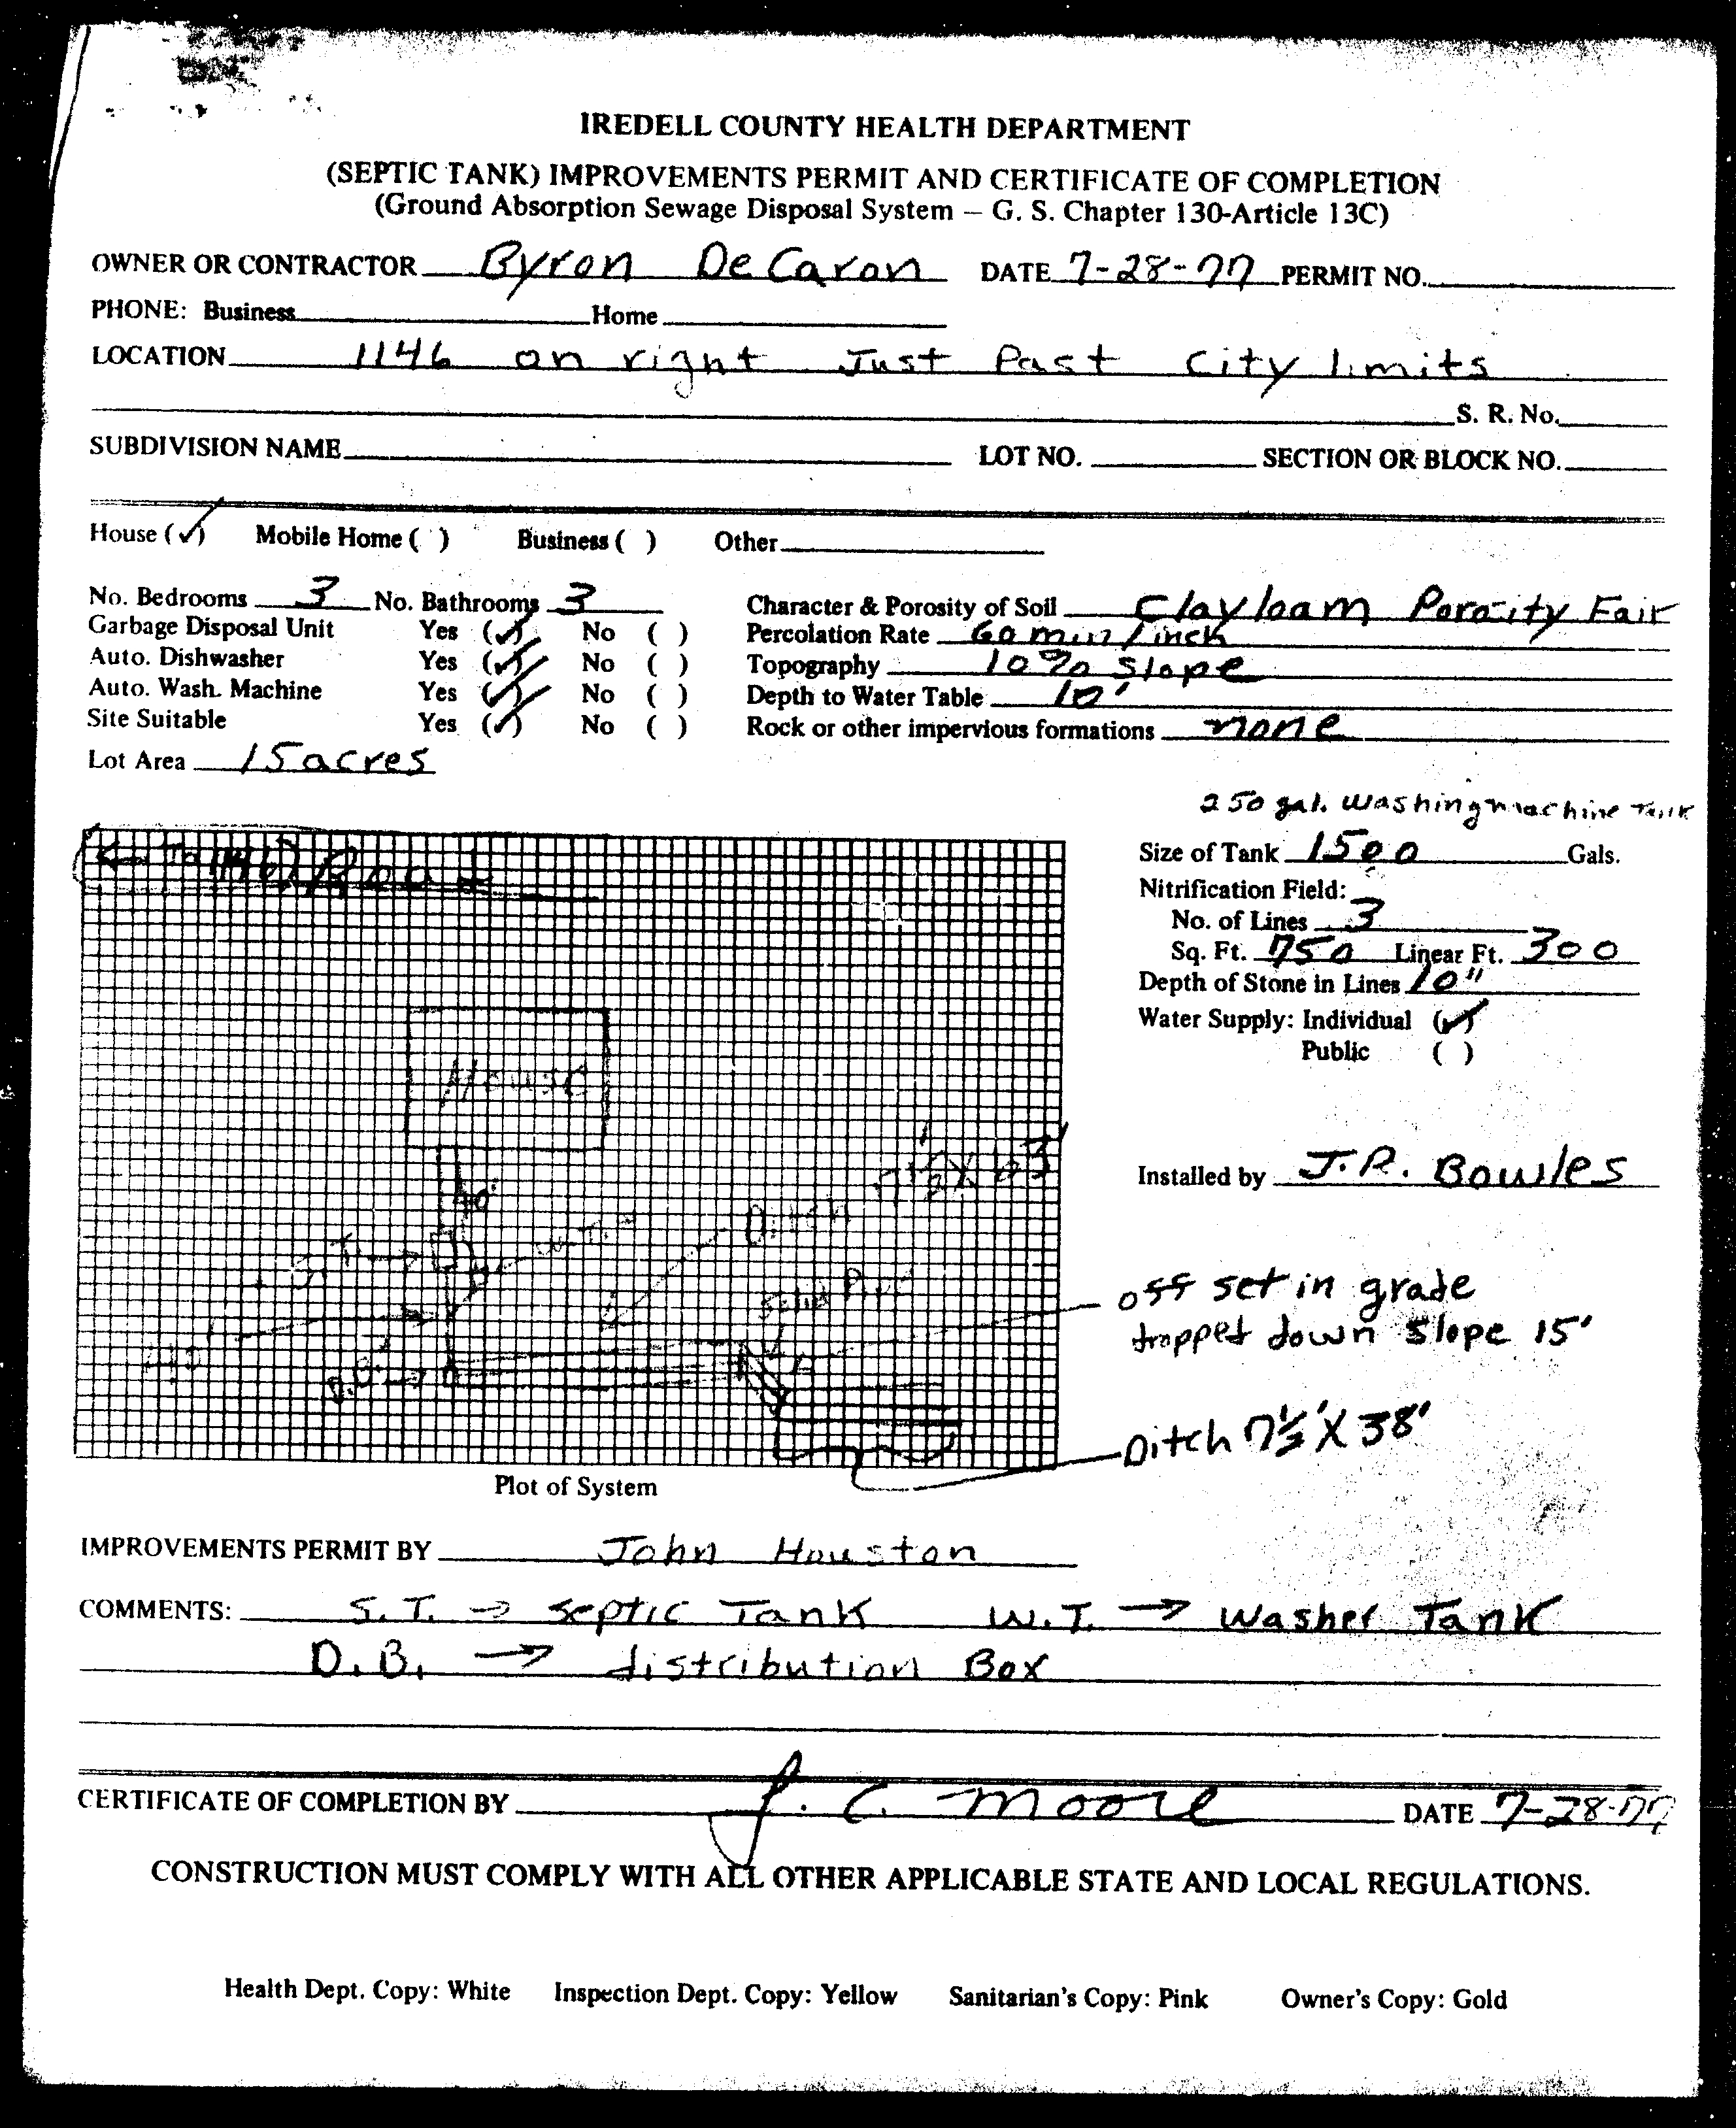 IREDELL COUNTY HEALTH DEPARTMENT
(SEPTIC TANK) IMPROVEMENTS PERMIT AND CERTIFICATE OF COMPLETION
(Ground Absorption Sewage Disposal System — G. S. Chapter 130-Article 13C)
OWNER OR CONTRACTOR Byron DeCaron DATE 7-28-77 PERMIT NO.
PHONE: Business Home
LOCATION 1146 on right Just Past City limits
S. R. No.
SUBDIVISION NAME LOT NO. SECTION OR BLOCK NO.
House (✓) Mobile Home ( ) Business ( ) Other
No. Bedrooms 3 No. Bathrooms 3
Garbage Disposal Unit Yes (✓) No ( )
Auto. Dishwasher Yes (✓) No ( )
Auto. Wash. Machine Yes (✓) No ( )
Site Suitable Yes (✓) No ( )
Lot Area 15 acres
Character & Porosity of Soil Clayloam Porosity Fair
Percolation Rate 60 min/inch
Topography 10% Slope
Depth to Water Table 10'
Rock or other impervious formations none
250 gal. washing machine Tank
Size of Tank 1500 Gals.
Nitrification Field:
No. of Lines 3
Sq. Ft. 750 Linear Ft. 300
Depth of Stone in Lines 10"
Water Supply: Individual (✓)
Public ( )
Installed by J.R. Bowles
← To 1146 Road
House
40'
S.T.
W.T.
Ditch
Solid Pipe
D.B.
off set in grade
dropped down slope 15'
Ditch 7½' X 38'
Plot of System
IMPROVEMENTS PERMIT BY John Houston
COMMENTS: S.T. → Septic Tank W.T. → Washer Tank
D.B. → distribution Box
CERTIFICATE OF COMPLETION BY J. C. Moore DATE 7-28-77
CONSTRUCTION MUST COMPLY WITH ALL OTHER APPLICABLE STATE AND LOCAL REGULATIONS.
Health Dept. Copy: White Inspection Dept. Copy: Yellow Sanitarian's Copy: Pink Owner's Copy: Gold